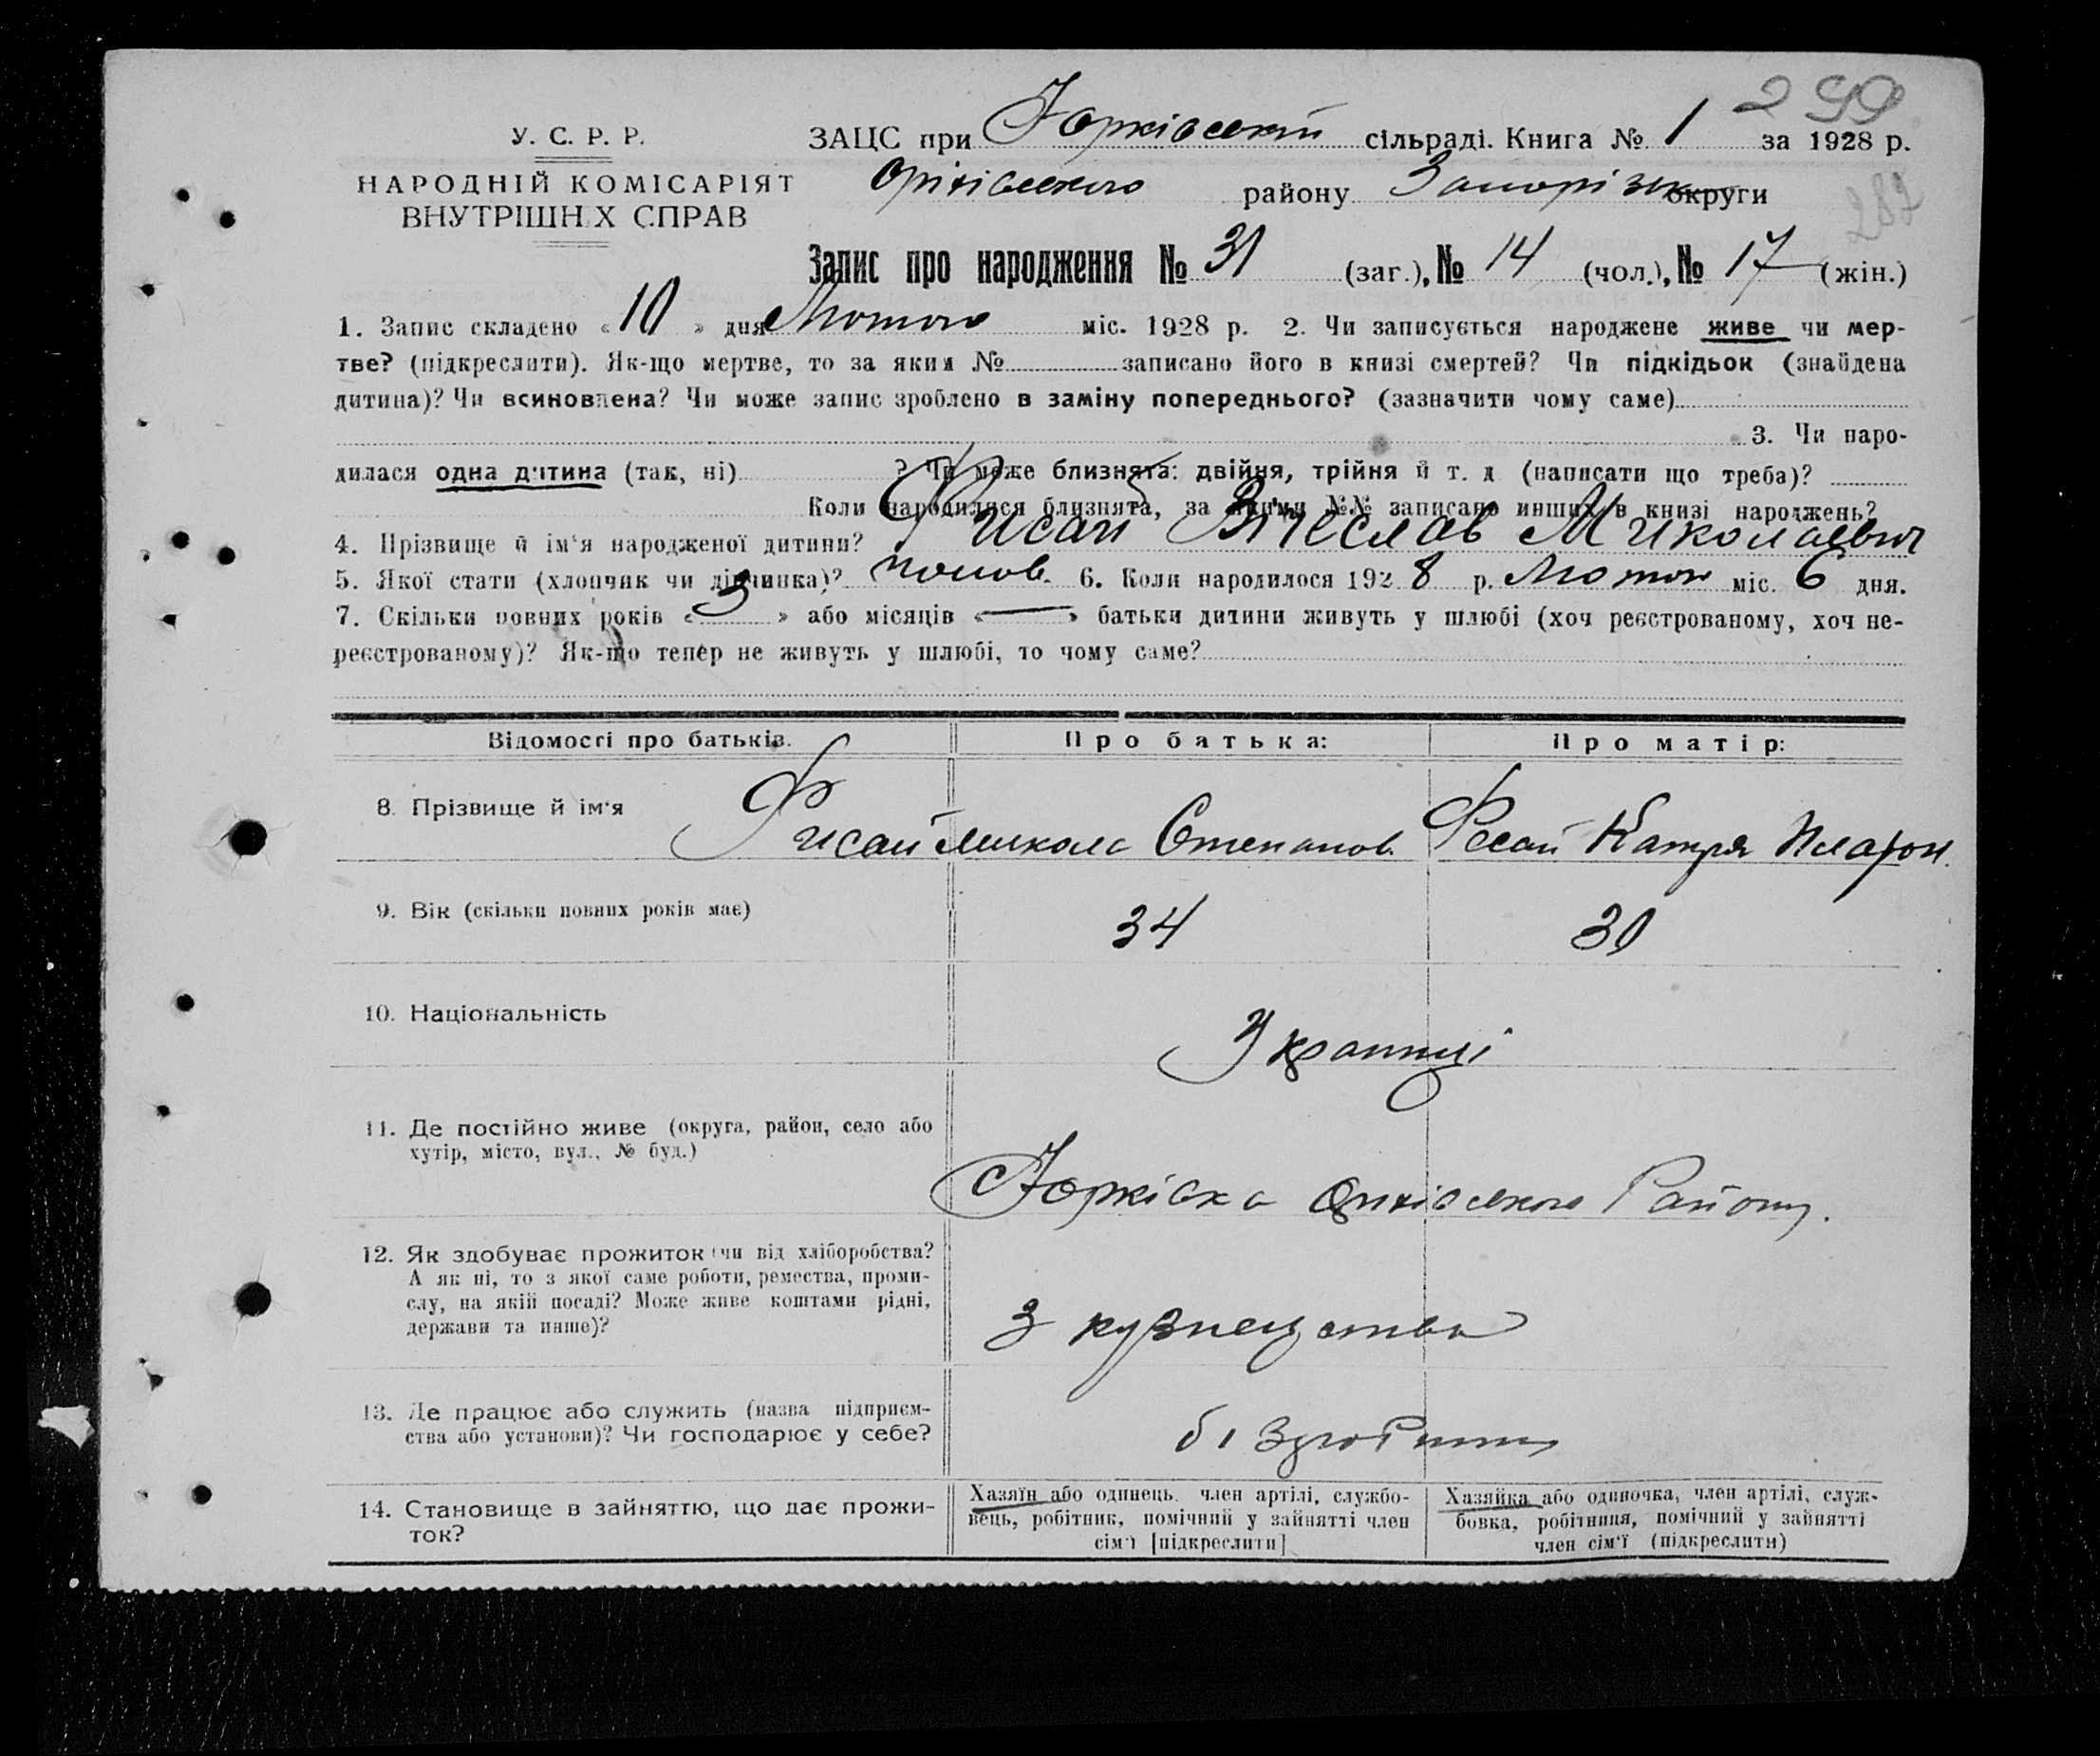 299
У. С. Р. Р.
НАРОДНІЙ КОМІСАРІЯТ
ВНУТРІШН Х СПРАВ
ЗАЦС при Юрківській сільраді. Книга № 1 за 1928 р.
Оріхівського району Запорізьк округи
287
Запис про народження № 31 (заг.), № 14 (чол.), № 17 (жін.)
1. Запис складено «10» дня Лютого міс. 1928 р. 2. Чи записується народжене живе чи мер-
тве? (підкреслити). Як-що мертве, то за яким № записано його в книзі смертей? Чи підкідьок (знайдена
дитина)? Чи всиновлена? Чи може запис зроблено в заміну попереднього? (зазначити чому саме)
3. Чи наро-
дилася одна дитина (так, ні) ? Чи може близнята: двійня, трійня й т. д (написати що треба)?
Коли народилися близнята, за якими №№ записано инших в книзі народжень?
4. Прізвище й ім'я народженої дитини? Фисай Вячеслав Миколаевич
5. Якої стати (хлопчик чи дівчинка)? чолов. 6. Коли народилося 1928 р. Лютого міс. 6 дня.
7. Скільки повних років «3» або місяців «—» батьки дитини живуть у шлюбі (хоч реєстрованому, хоч не-
реєстрованому)? Як-що тепер не живуть у шлюбі, то чому саме?
Відомості про батьків. Про батька: Про матір:
8. Прізвище й ім'я Фисай Микола Степанов. Фисай Катря Пларон.
9. Вік (скільки повних років має) 34 30
10. Національність Українці
11. Де постійно живе (округа, район, село або
хутір, місто, вул., № буд.)
Юрківка Оріхівського Району.
12. Як здобуває прожиток (чи від хліборобства?
А як ні, то з якої саме роботи, ремества, проми-
слу, на якій посаді? Може живе коштами рідні,
держави та инше)?
З кузнецтва
13. Де працює або служить (назва підприєм-
ства або установи)? Чи господарює у себе?
14. Становище в зайняттю, що дає прожи-
ток?
Хазяїн або одинець, член артілі, службо-
вець, робітник, помічний у зайнятті член
сім'ї [підкреслити]
Хазяйка або одиночка, член артілі, служ-
бовка, робітниця, помічний у зайнятті
член сім'ї (підкреслити)